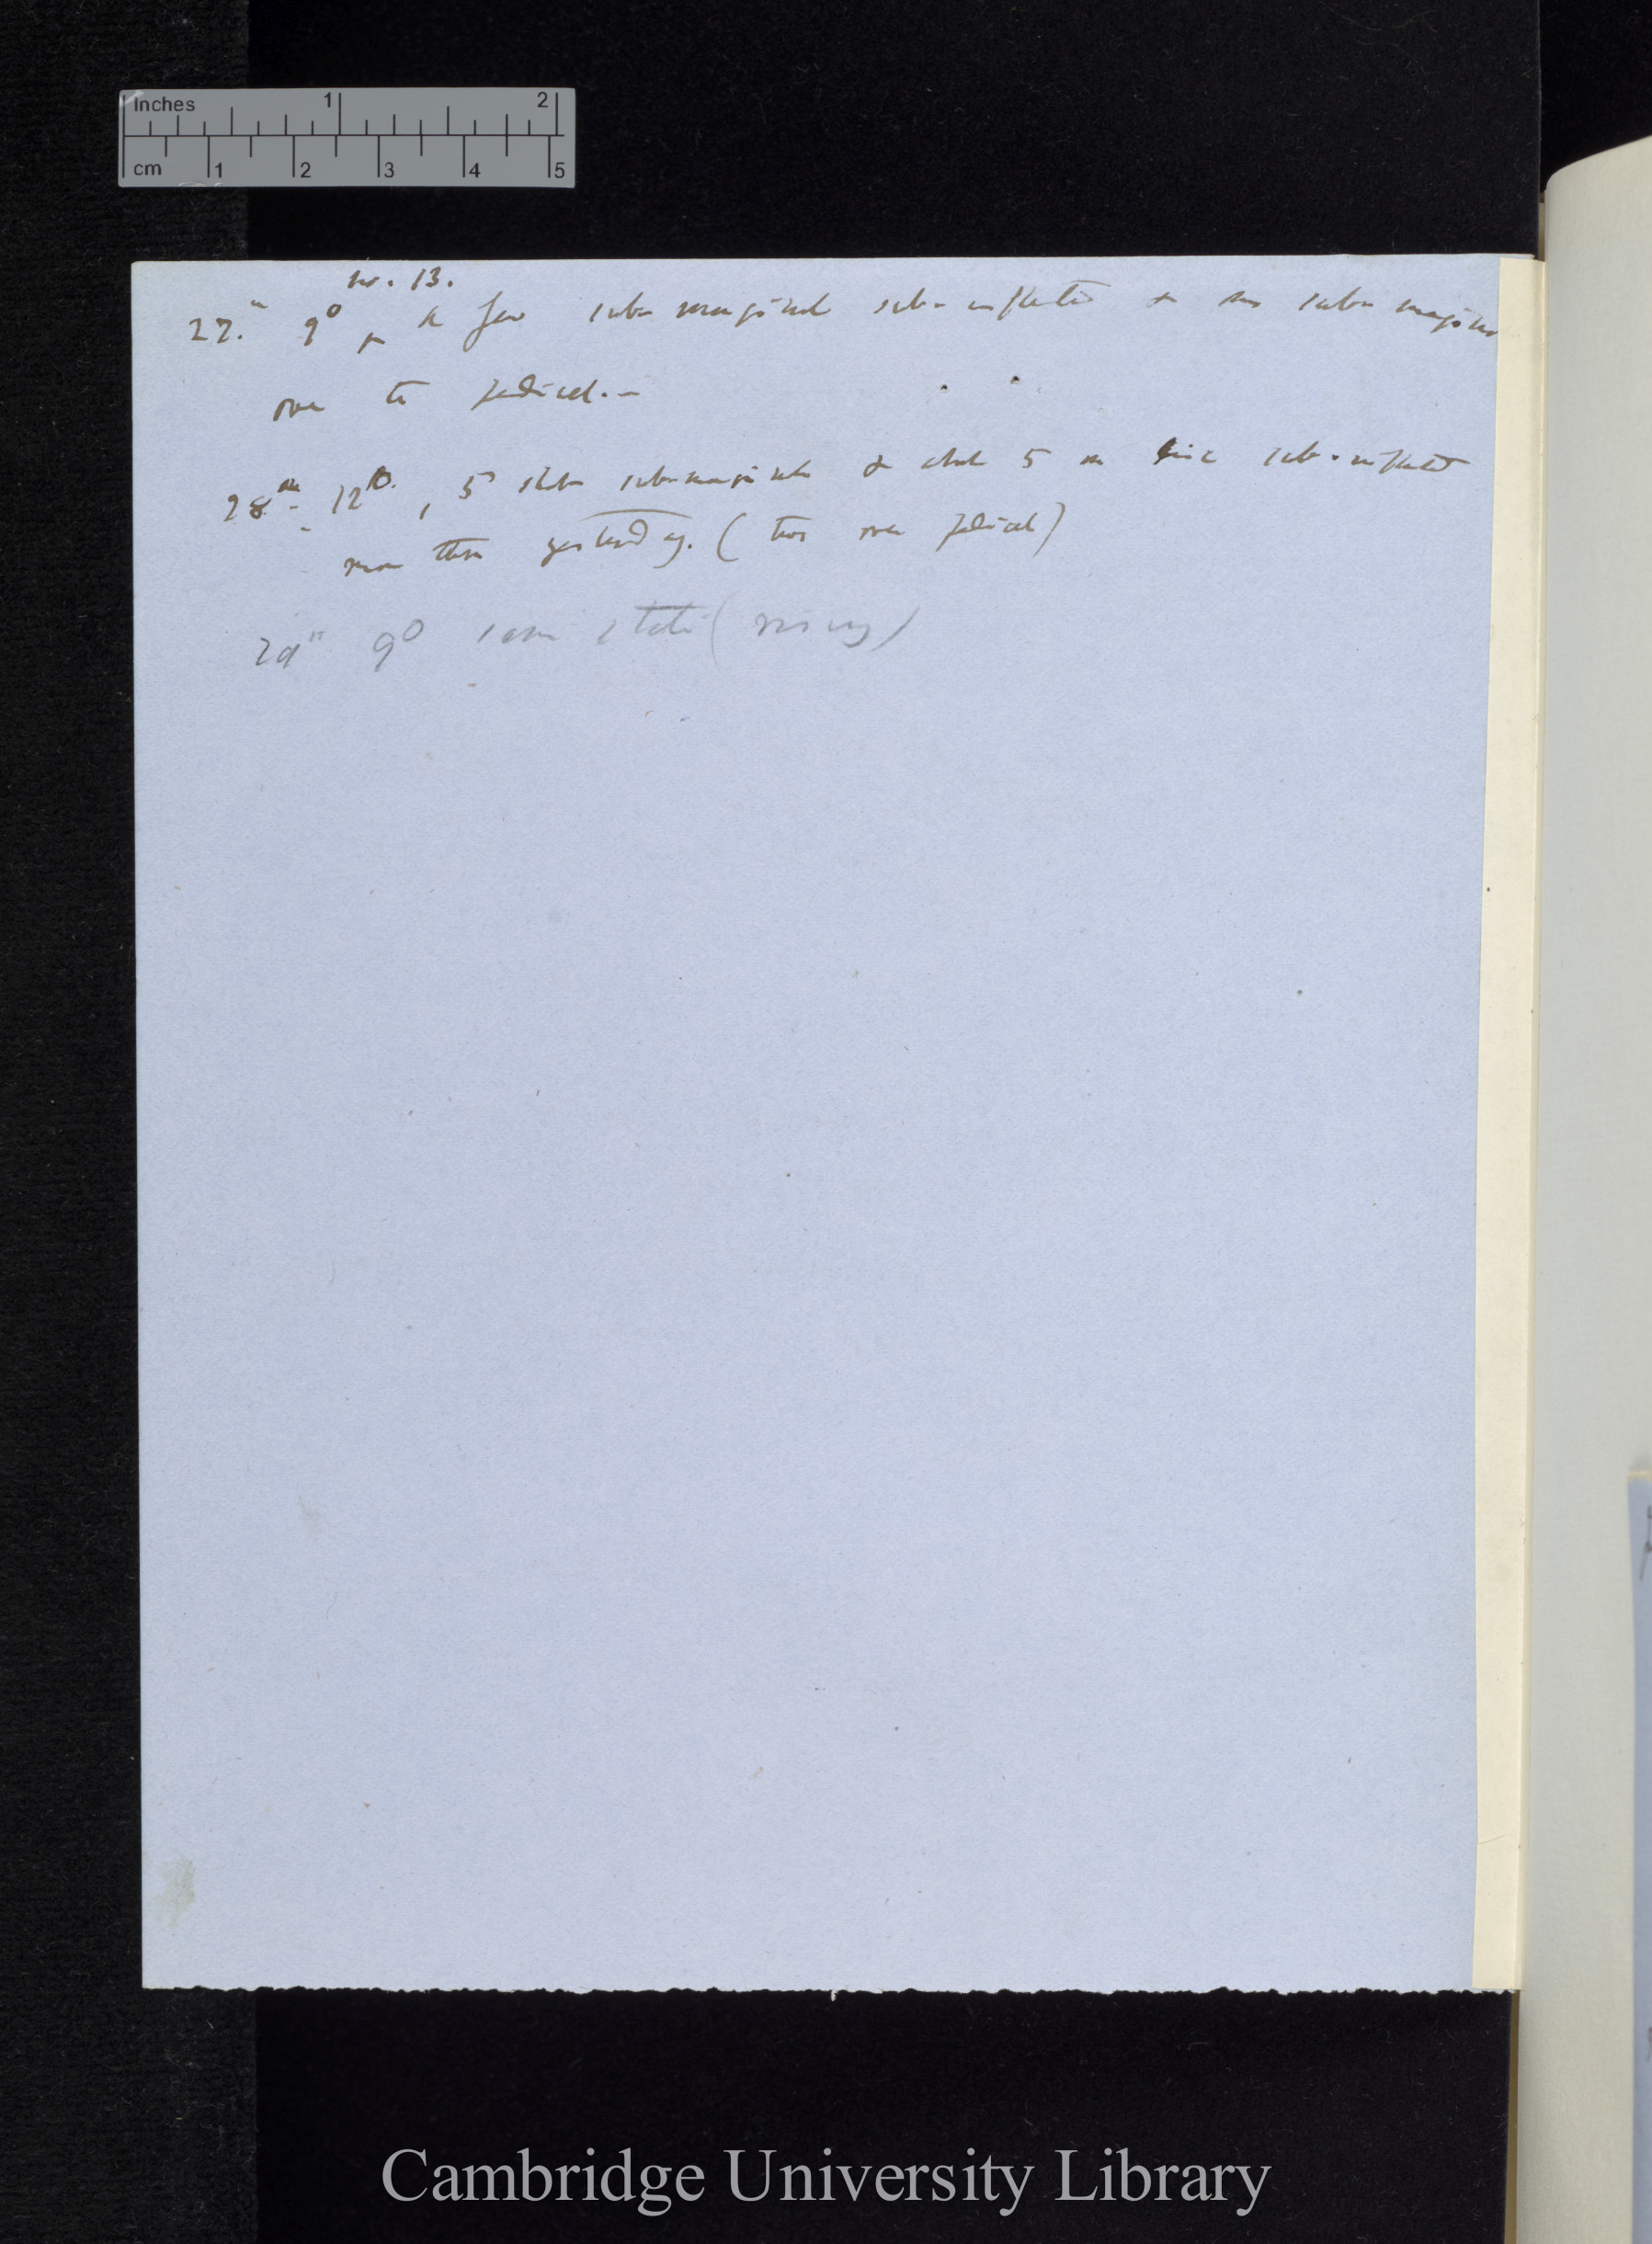 Inches 1 2
cm 1 2 3 4 5
no. 13.
27th 9° a few sub-marginal sub-inflected & sub-marginal
over the pedicel.—
28th 12°, 5 sub-marginals & about 5 or six sub-inflected
more than yesterday. (two over pedicel)
29th 9° same state (rising)
Cambridge University Library